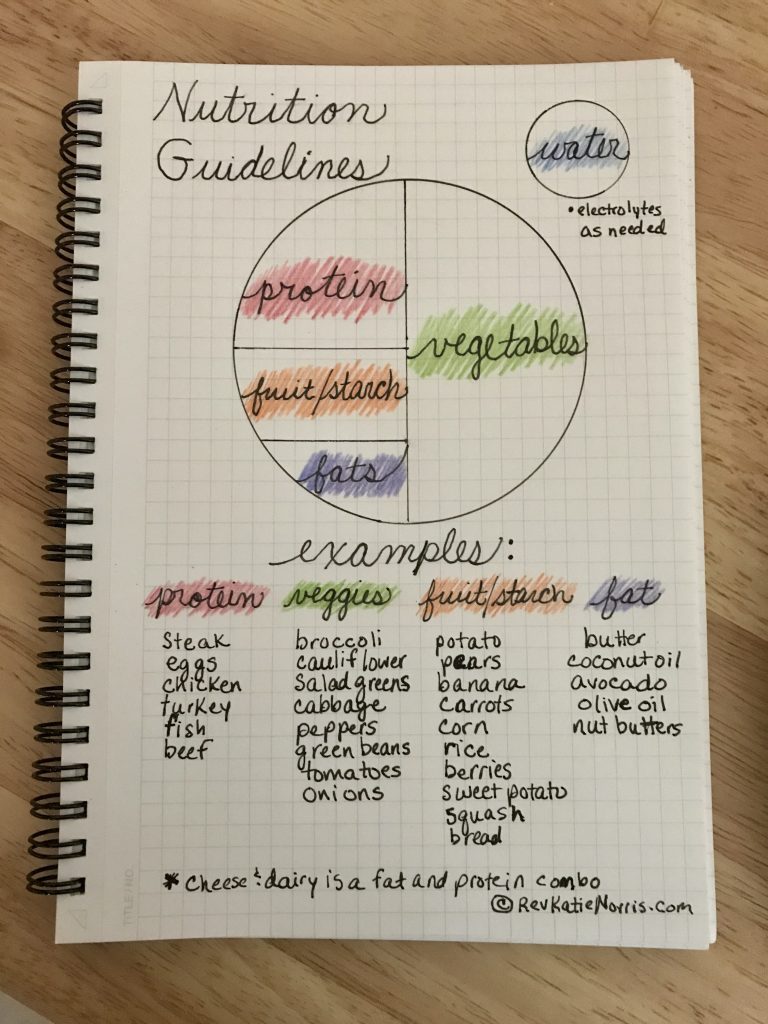 Nutrition
Guidelines
water
• electrolytes
as needed
protein
vegetables
fruit/starch
fats
examples:
protein veggies fruit/starch fat
steak
eggs
chicken
turkey
fish
beef
broccoli
cauliflower
salad greens
cabbage
peppers
green beans
tomatoes
onions
potato
pears
banana
carrots
corn
rice
berries
sweet potato
squash
bread
butter
coconut oil
avocado
olive oil
nut butters
* Cheese & dairy is a fat and protein combo
© RevKatieNorris.com
TITLE/NO.